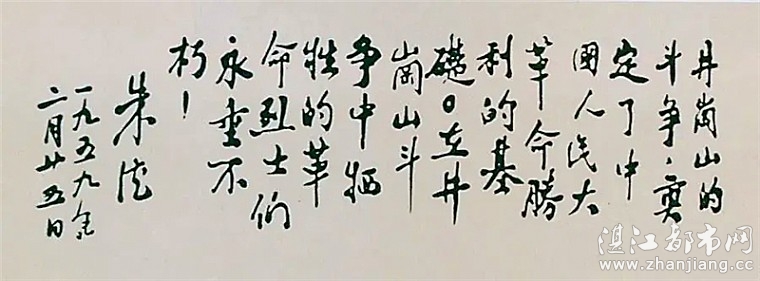 井崗山的
斗争，奠
定了中
國人民大
革命勝
利的基
礎。在井
崗山斗
争中牺
牲的革
命烈士们
永垂不
朽！
朱德
一九五九年
二月廿五日
湛江都市网
www.zhanjiang.cc